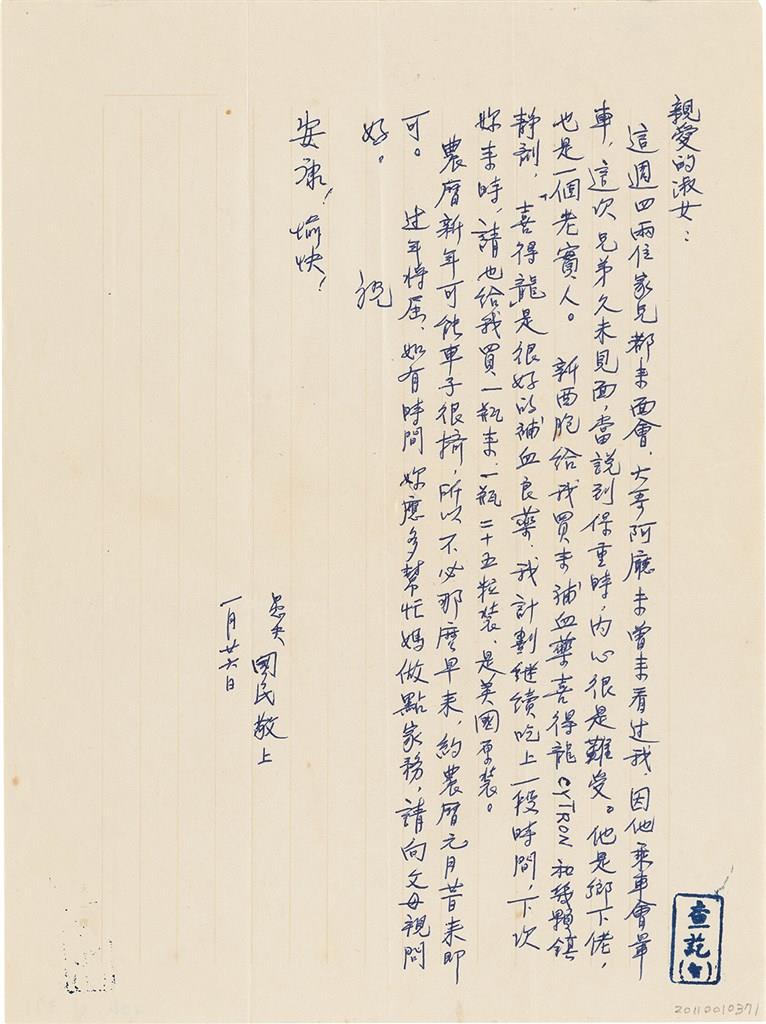 親愛的淑女：
這週四兩位家兄都來面會，大哥阿廳未曾來看过我，因他乘車會暈
車，這次兄弟久未見面，當説到保重時，内心很是難受。他是鄉下佬，
也是一個老實人。　新西胞給我買來補血藥喜得龍CYTRON和幾顆鎮
靜劑，「喜得龍」是很好的補血良藥，我計劃継續吃上一段時間，下次
妳來時，請也給我買一瓶來，一瓶二十五粒裝，是美國原裝。
農曆新年可能車子很擠，所以不必那麼早來，約農曆元月昔來即
可。　过年將屆，如有時間妳應多幫忙媽做點家務，請向父母親問
好。
祝
安康！愉快！
愚夫　國民敬上
一月廿六日
查訖
20110010371